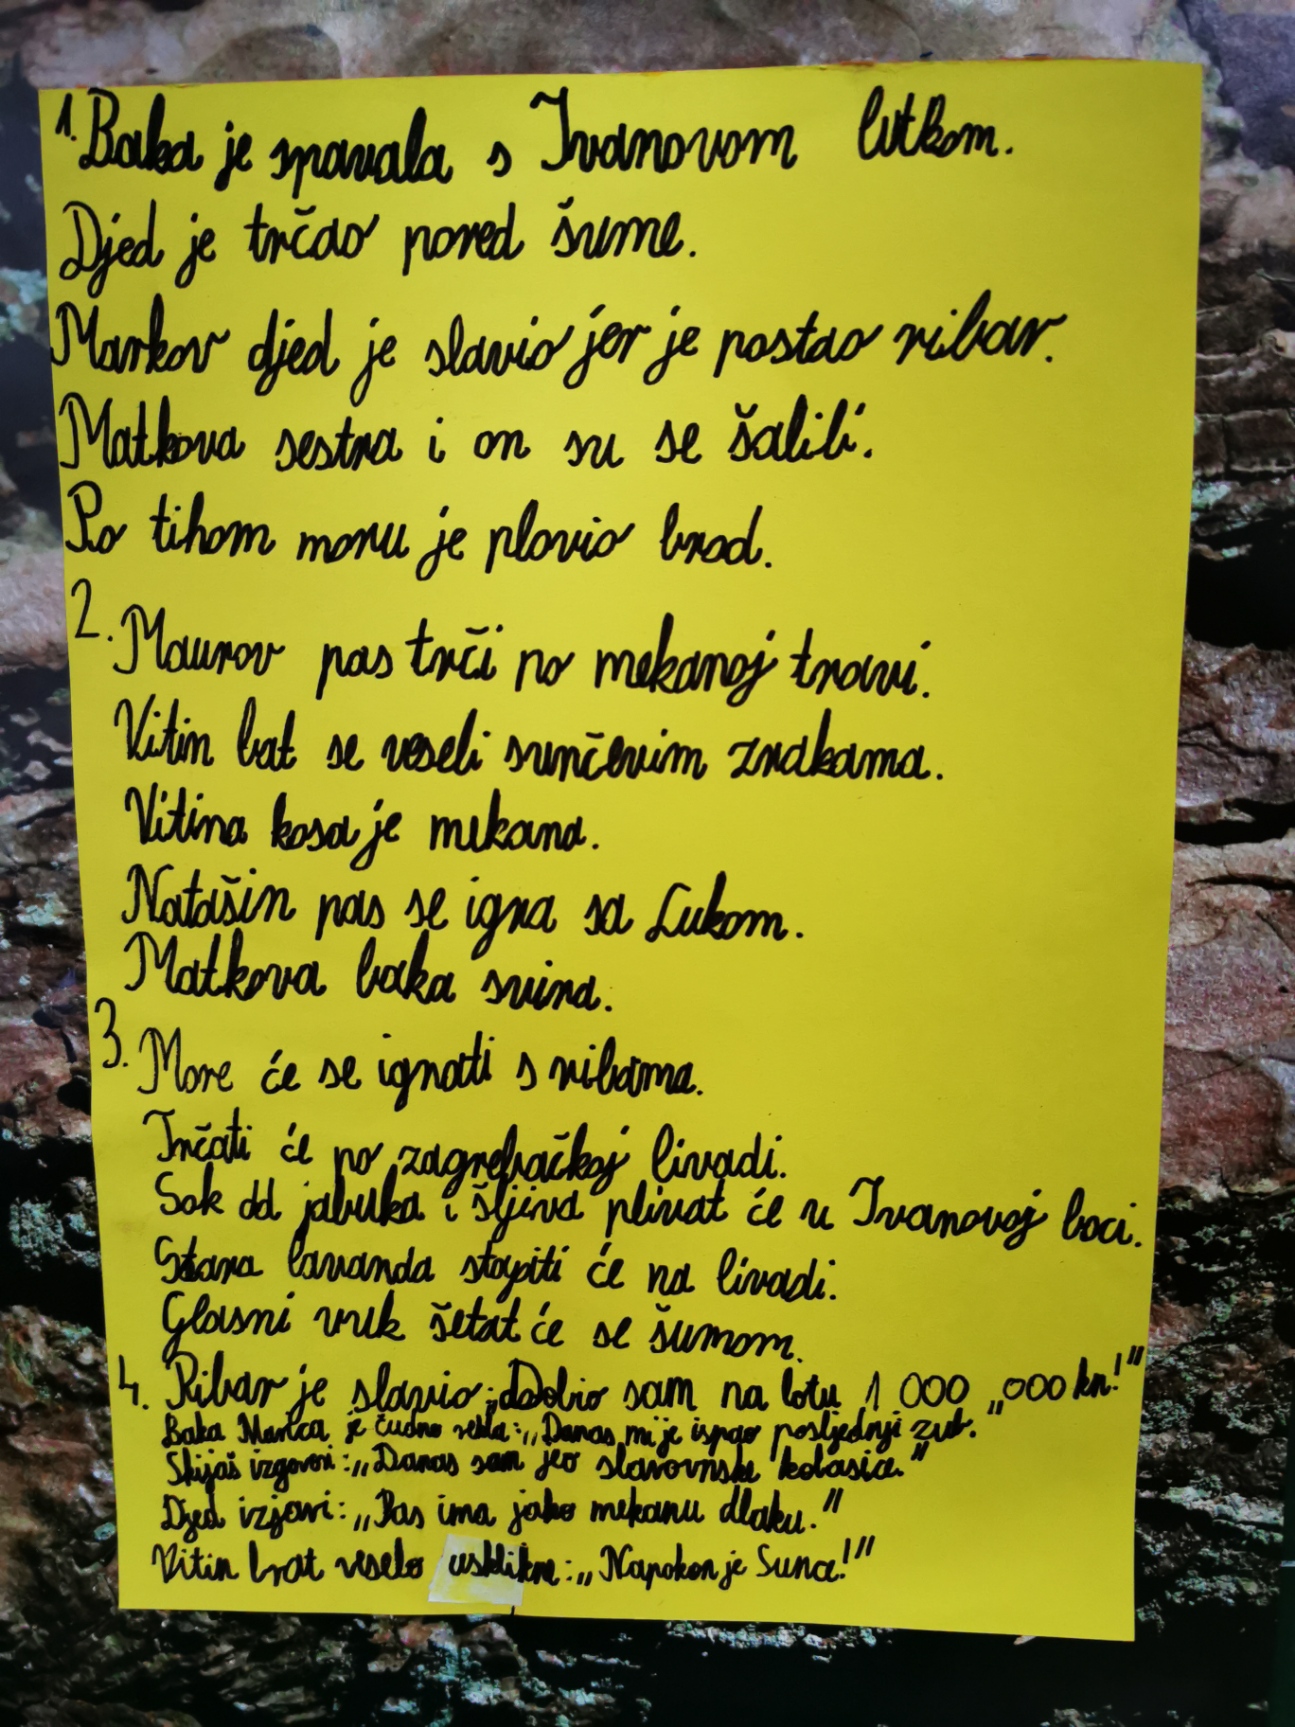 1. Baka je spavala s Ivanovom lutkom.
Djed je trčao pored šume.
Markov djed je slavio jer je postao ribar.
Matkova sestra i on su se šalili.
Po tihom moru je plovio brod.
2. Maurov pas trči po mekanoj travi.
Vitin bat se veseli sunčevim zrakama.
Vitina kosa je mekana.
Natašin pas se igra sa Lukom.
Matkova baka svira.
3. More će se igrati s ribama.
Trčati će po zagrebačkoj livadi.
Sok od jabuka i šljiva plivat će u Ivanovoj boci.
Stara lavanda stopiti će na livadi.
Glasni vuk šetat će se šumom.
4. Ribar je slavio: „Dobio sam na lotu 1 000 000 kn!"
Baka Marica je čudno rekla: „Danas mi je ispao posljednji zub."
Skijaš izgovori: „Danas sam jeo slavonske kolasice."
Djed izjavi: „Pas ima jako mekanu dlaku."
Vitin brat veselo usklikne: „Napokon je Sunca!"